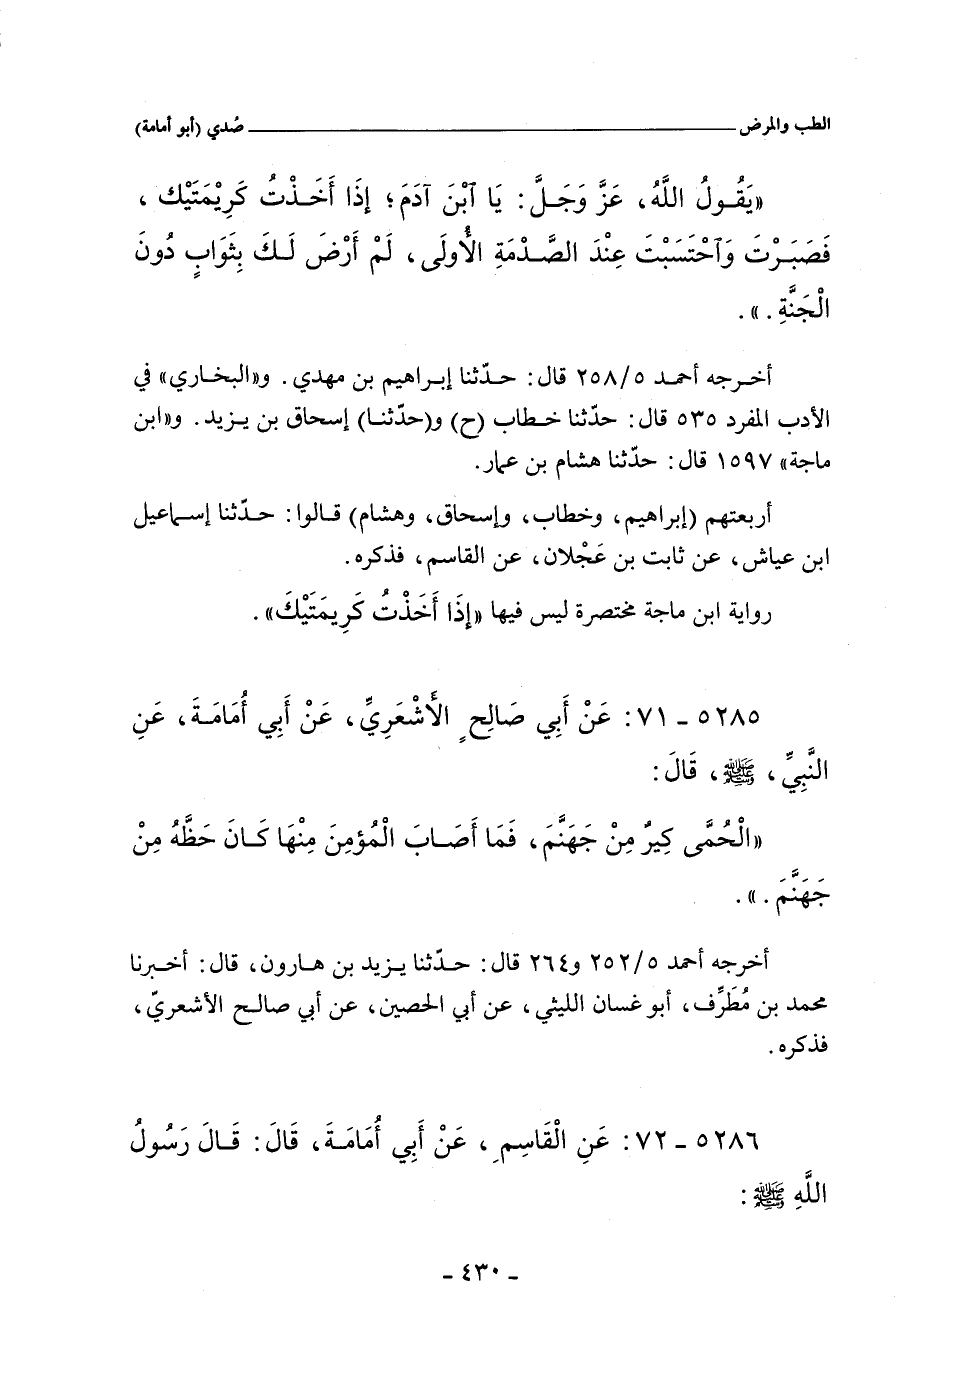 الطب والمرض ــــــــــ صُدي (أبو أمامة)
«يَقُولُ اللَّهُ، عَزَّ وَجَلَّ: يَا ٱبْنَ آدَمَ؛ إِذَا أَخَذْتُ كَرِيْمَتَيْكَ،
فَصَبَرْتَ وَٱحْتَسَبْتَ عِنْدَ الصَّدْمَةِ الْأُولَى، لَمْ أَرْضَ لَكَ بِثَوَابٍ دُونَ
الْجَنَّةِ.».
أخرجه أحمد ٢٥٨/٥ قال: حدّثنا إبراهيم بن مهدي. و«البخاري» في
الأدب المفرد ٥٣٥ قال: حدّثنا خطاب (ح) و(حدّثنا) إسحاق بن يزيد. و«ابن
ماجة» ١٥٩٧ قال: حدّثنا هشام بن عمار.
أربعتهم (إبراهيم، وخطاب، وإسحاق، وهشام) قالوا: حدّثنا إسماعيل
ابن عياش، عن ثابت بن عَجْلان، عن القاسم، فذكره.
رواية ابن ماجة مختصرة ليس فيها «إِذَا أَخَذْتُ كَرِيمَتَيْكَ».
٥٢٨٥ - ٧١: عَنْ أَبِي صَالِحٍ الْأَشْعَرِيِّ، عَنْ أَبِي أُمَامَةَ، عَنِ
النَّبِيِّ، ﷺ، قَالَ:
«الْحُمَّى كِيرٌ مِنْ جَهَنَّمَ، فَمَا أَصَابَ الْمُؤمِنَ مِنْهَا كَانَ حَظَّهُ مِنْ
جَهَنَّمَ.».
أخرجه أحمد ٢٥٢/٥ و٢٦٤ قال: حدّثنا يزيد بن هارون، قال: أخبرنا
محمد بن مُطَرِّف، أبو غسان الليثي، عن أبي الحصين، عن أبي صالح الأشعريّ،
فذكره.
٥٢٨٦ - ٧٢: عَنِ الْقَاسِمِ، عَنْ أَبِي أُمَامَةَ، قَالَ: قَالَ رَسُولُ
اللَّهِ ﷺ:
- ٤٣٠ -